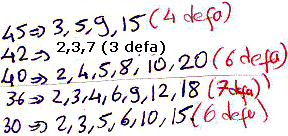 45⇒ 3,5,9,15 (4 defa)
42⇒ 2,3,7 (3 defa)
40⇒ 2,4,5,8,10,20 (6 defa)
36⇒ 2,3,4,6,9,12,18 (7 defa)
30⇒ 2,3,5,6,10,15 (6 defa)